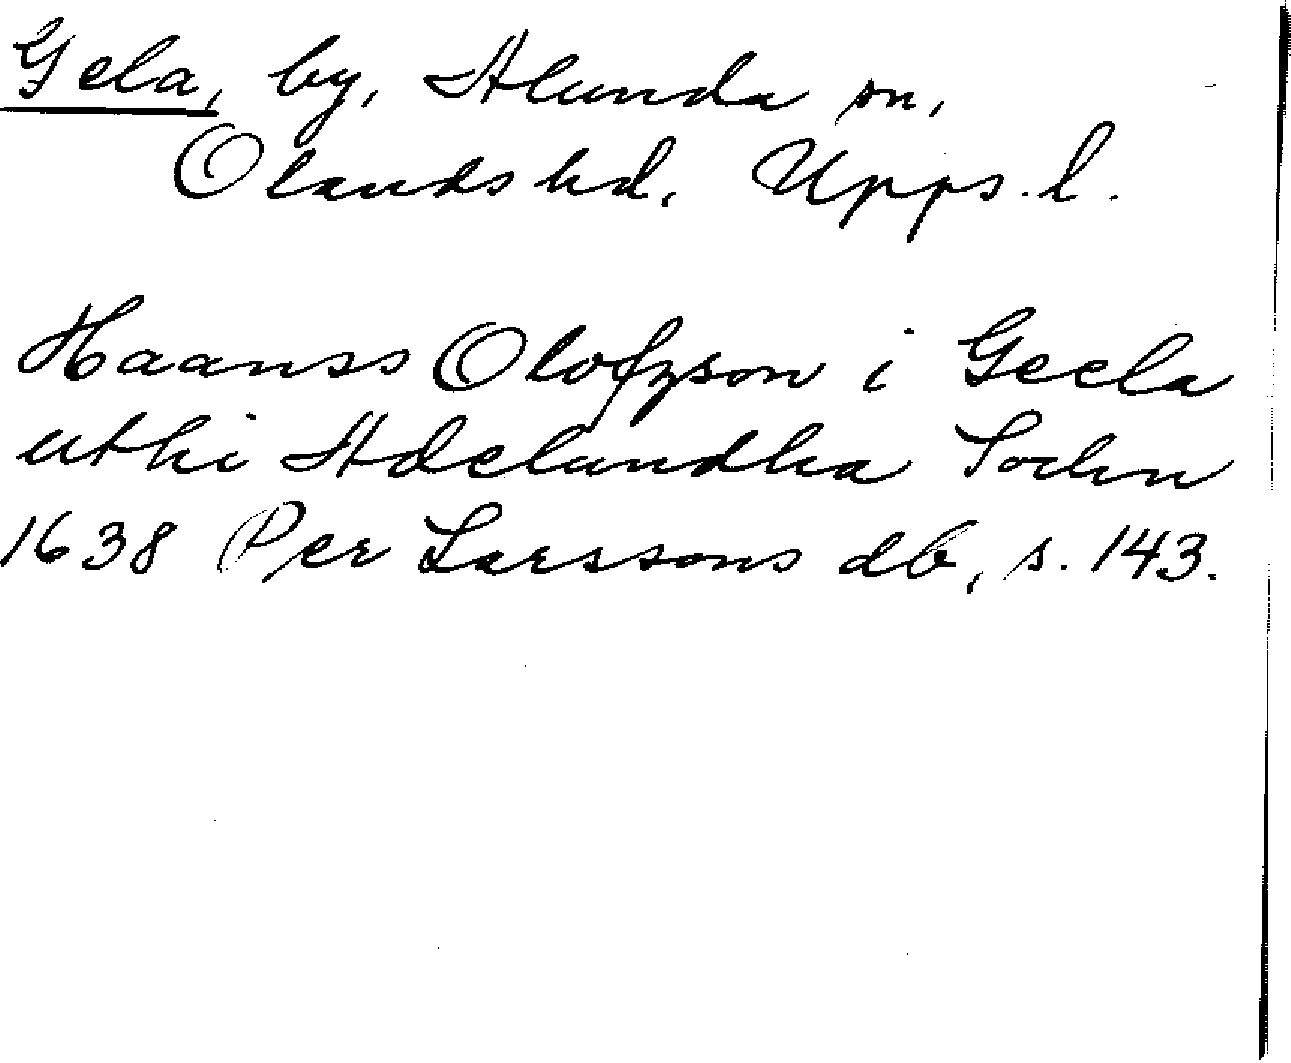 Gela, by, Alunda sn,
Olands hd. Upps. l.
Haanss Olofzson i Geela
uthi Adelundha Sochn
1638 Per Larssons db, s. 143.